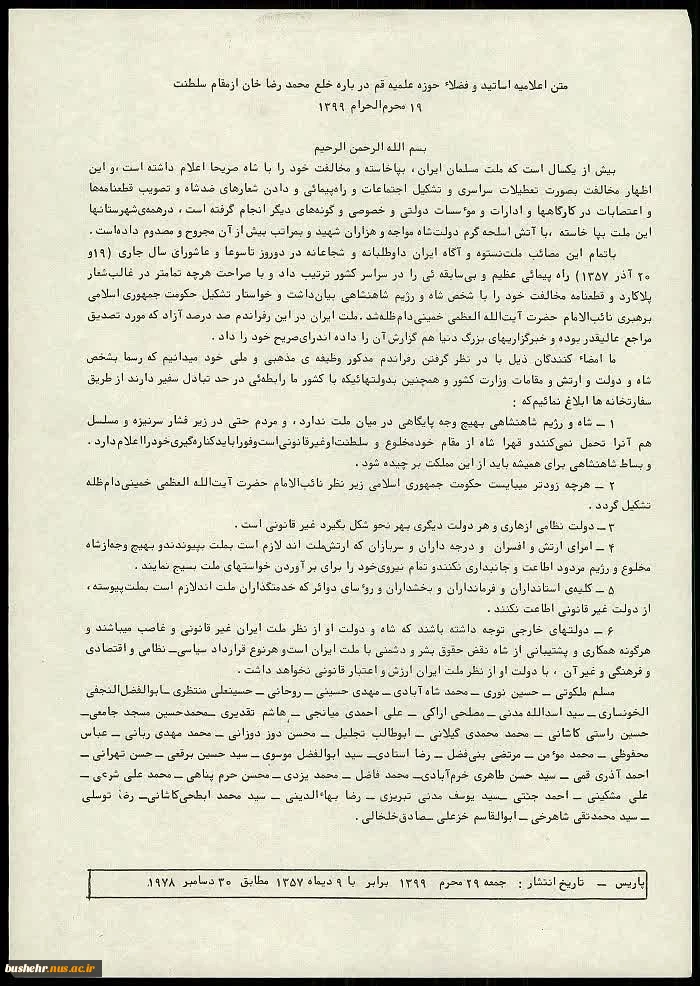 متن اعلامیه اساتید و فضلاء حوزه علمیه قم در باره خلع محمد رضا خان از مقام سلطنت
۱۹ محرم‌الحرام ۱۳۹۹
بسم الله الرحمن الرحیم
بیش از یکسال است که ملت مسلمان ایران ، بپاخاسته و مخالفت خود را با شاه صریحا اعلام داشته است ،و این
اظهار مخالفت بصورت تعطیلات سراسری و تشکیل اجتماعات و راه‌پیمائی و دادن شعارهای ضدشاه و تصویب قطعنامه‌ها
و اعتصابات در کارگاهها و ادارات و موٴسسات دولتی و خصوصی و گونه‌های دیگر انجام گرفته است ، درهمه‌ی‌شهرستانها
این ملت بپا خاسته ،با آتش اسلحه گرم دولت‌شاه مواجه و هزاران شهید و بمراتب بیش از آن مجروح و مصدوم داده‌است .
باتمام این مصائب ملت‌نستوه و آگاه ایران داوطلبانه و شجاعانه در دوروز تاسوعا و عاشورای سال جاری (۱۹و
۲۰ آذر ۱۳۵۷) راه پیمائی عظیم و بی‌سابقه ئی را در سراسر کشور ترتیب داد و با صراحت هرچه تمامتر در غالب‌شعار
پلاکارد و قطعنامه مخالفت خود را با شخص شاه و رژیم شاهنشاهی بیان‌داشت و خواستار تشکیل حکومت جمهوری اسلامی
برهبری نائب‌الامام حضرت آیت‌الله العظمی خمینی‌دام‌ظله‌شد .ملت ایران در این رفراندم صد درصد آزاد که مورد تصدیق
مراجع عالیقدر بوده و خبرگزاریهای بزرگ دنیا هم گزارش آن را داده اندرای‌صریح خود را داد .
ما امضاء کنندگان ذیل با در نظر گرفتن رفراندم مذکور وظیفه ی مذهبی و ملی خود میدانیم که رسما بشخص
شاه و دولت و ارتش و مقامات وزارت کشور و همچنین بدولتهائیکه با کشور ما رابطه‌ئی در حد تبادل سفیر دارند از طریق
سفارتخانه ها ابلاغ نمائیم‌که :
۱ ــ شاه و رژیم شاهنشاهی بهیچ وجه پایگاهی در میان ملت ندارد ، و مردم حتی در زیر فشار سرنیزه و مسلسل
هم آنرا تحمل نمی‌کنندو قهرا شاه از مقام خودمخلوع و سلطنت‌اوغیرقانونی‌است‌وفوراباید‌کناره‌گیری‌خودرااعلام‌دارد .
و بساط شاهنشاهی برای همیشه باید از این مملکت بر چیده شود .
۲ ــ هرچه زودتر میبایست حکومت جمهوری اسلامی زیر نظر نائب‌الامام حضرت آیت‌الله العظمی خمینی‌دام‌ظله
تشکیل گردد .
۳ ــ دولت نظامی ازهاری و هر دولت دیگری بهر نحو شکل بگیرد غیر قانونی است .
۴ ــ امرای ارتش و افسران و درجه داران و سربازان که ارتش‌ملت اند لازم است بملت بپیوندندو بهیچ وجه‌ازشاه
مخلوع و رژیم مردود اطاعت و جانبداری نکنندو تمام نیروی‌خود را برای بر آوردن خواستهای ملت بسیج نمایند .
۵ ــ کلیه‌ی استانداران و فرمانداران و بخشداران و روٴسای دوائر که خدمتگذاران ملت اندلازم است بملت‌پیوسته ،
از دولت غیر قانونی اطاعت نکنند .
۶ ــ دولتهای خارجی توجه داشته باشند که شاه و دولت او از نظر ملت ایران غیر قانونی و غاصب میباشند و
هرگونه همکاری و پشتیبانی از شاه نقض حقوق بشر و دشمنی با ملت ایران است‌و هرنوع قرارداد سیاسی‌ــ نظامی و اقتصادی
و فرهنگی و غیر آن ، با دولت او از نظر ملت ایران ارزش و اعتبار قانونی نخواهد داشت .
مسلم ملکوتی ــ حسین نوری ــ محمد شاه آبادی ــ مهدی حسینی ــ روحانی ــ حسینعلی منتظری ــابوالفضل‌النجفی
الخونساری ــ سید اسدالله مدنی ــ مصلحی اراکی ــ علی احمدی میانجی ــ هاشم تقدیری ــمحمدحسین مسجد جامعی‌ــ
حسین راستی کاشانی ــ محمد محمدی گیلانی ــ ابوطالب تجلیل ــ محسن دوز دوزانی ــ محمد مهدی ربانی ــ عباس
محفوظی ــ محمد موٴمن ــ مرتضی بنی‌فضل ــ رضا استادی‌ــ سید ابوالفضل موسوی ــ سید حسین برقعی ــ حسن تهرانی ــ
احمد آذری قمی ــ سید حسن طاهری خرم‌آبادی‌ــ محمد فاضل ــ محمد یزدی ــ محسن حرم پناهی ــ محمد علی شرعی ــ
علی مشکینی ــ احمد جنتی ــسید یوسف مدنی تبریزی ــ رضا بهاءالدینی ــ سید محمد ابطحی‌کاشانی‌ــ رضا توسلی
ــ سید محمدتقی شاهرخی ــ ابوالقاسم خزعلی ــصادق‌خلخالی .
پاریس ــ تاریخ انتشار : جمعه ۲۹ محرم ۱۳۹۹ برابر با ۹ دیماه ۱۳۵۷ مطابق ۳۰ دسامبر ۱۹۷۸
bushehr.nus.ac.ir